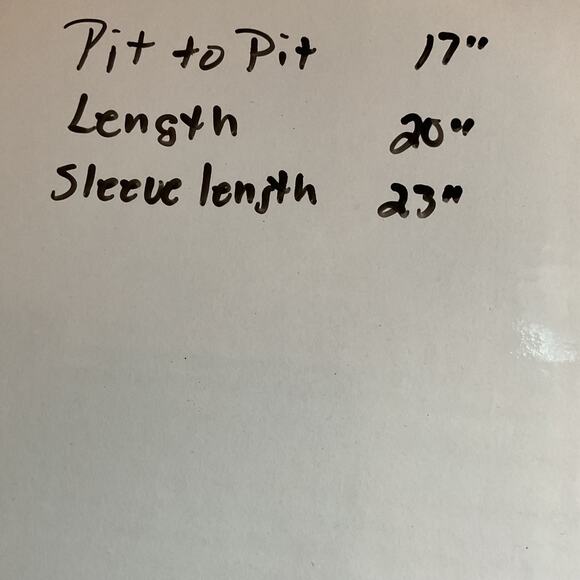 Pit to Pit 17"
Length 20"
Sleeve length 23"